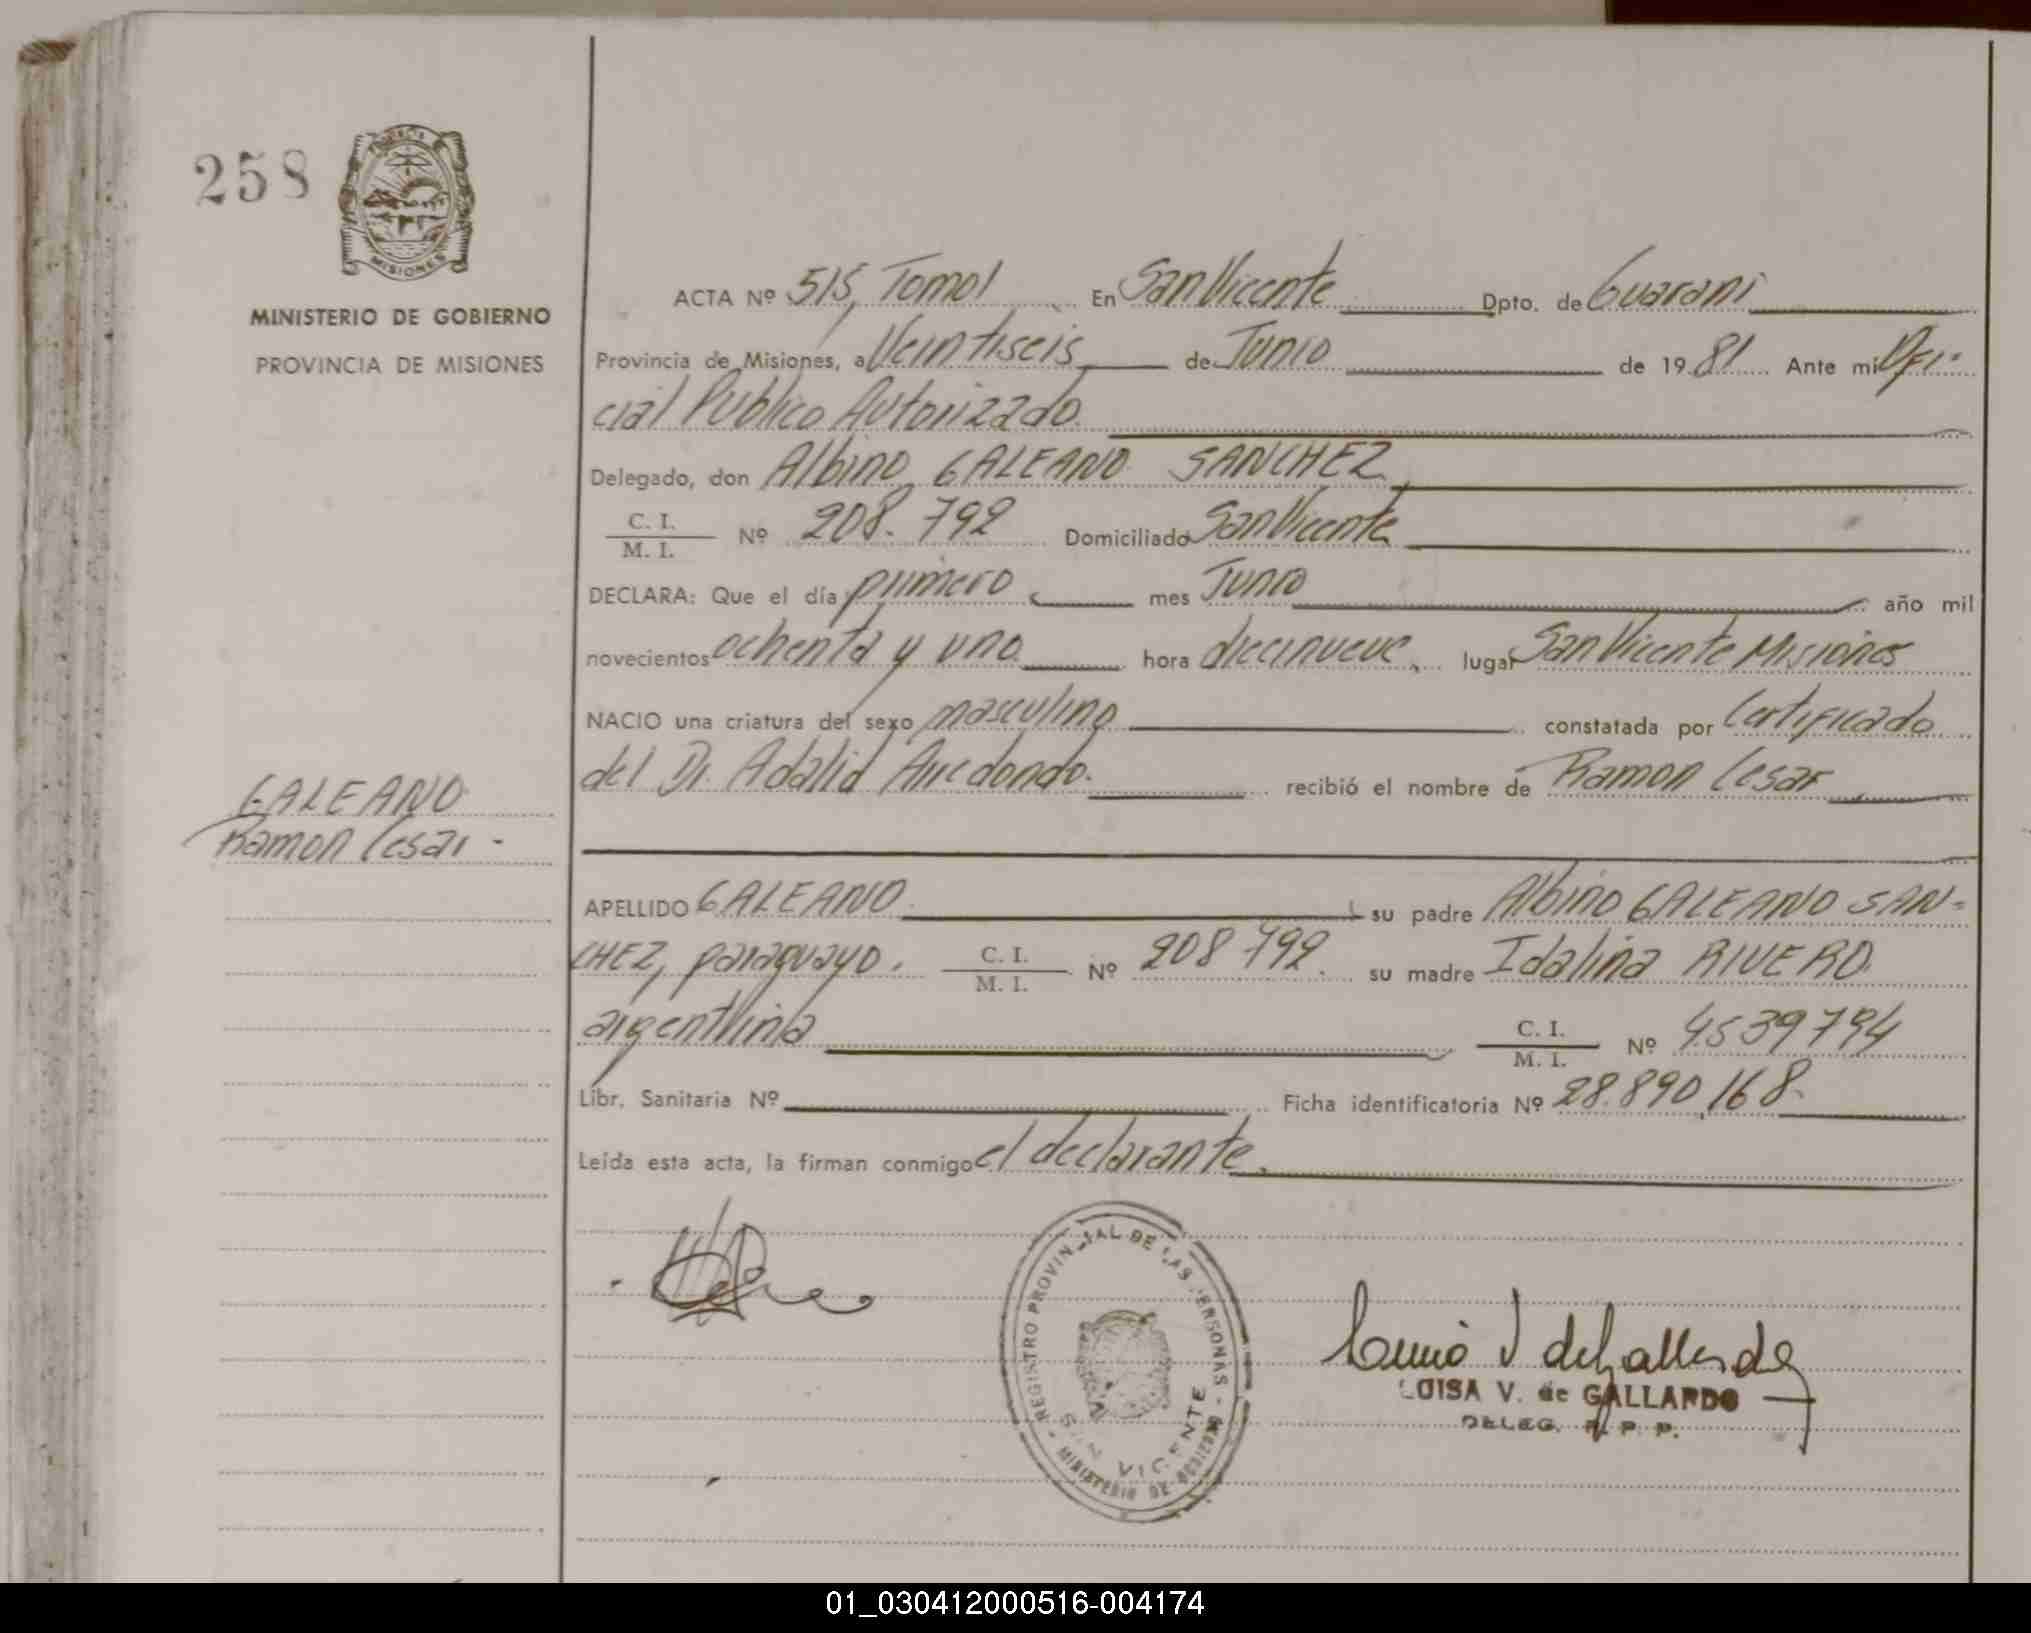 258
MISIONES
MINISTERIO DE GOBIERNO
PROVINCIA DE MISIONES
GALEANO
Ramon Cesar -
ACTA Nº 515, Tomo I En San Vicente Dpto. de Guarani
Provincia de Misiones, a Veintiseis de Junio de 1981 Ante mi Ofi-
cial Publico Autorizado.
Delegado, don Albino GALEANO SANCHEZ,
C. I.
M. I.
Nº 208.792 Domiciliado San Vicente
DECLARA: Que el día primero mes Junio año mil
novecientos ochenta y uno hora diecinueve, lugar San Vicente Misiones
NACIO una criatura del sexo masculino constatada por Certificado
del Dr. Adalid Arredondo. recibió el nombre de Ramon Cesar
APELLIDO GALEANO su padre Albino GALEANO SAN-
CHEZ, paraguayo. C. I. Nº 208792. su madre Idalina RIVERO
M. I.
argentina C. I. Nº 4539794
M. I.
Libr. Sanitaria Nº Ficha identificatoria Nº 28.890,168.
Leída esta acta, la firman conmigo el declarante.
REGISTRO PROVINCIAL DE LAS PERSONAS - MINISTERIO DE GOBIERNO -
SAN VICENTE
Luisa V de Gallardo
LUISA V. de GALLARDO
DELEG. R. P. P.
01_030412000516-004174